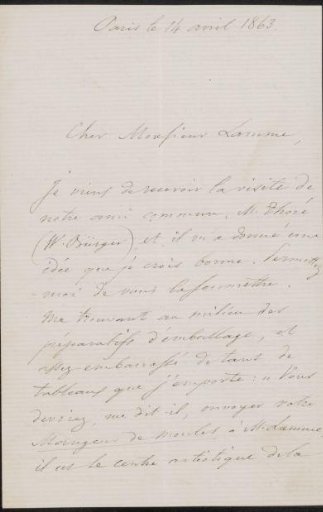 Paris le 14 avril 1863.
Cher Monsieur Lamme,
Je viens de recevoir la visite de
notre ami commun, M. Thoré
(W. Bürger) et il m'a donné une
idée que je crois bonne. Permettez
-moi de vous la soumettre.
Me trouvant au milieu des
préparatifs d'emballage, et
assez embarrassés de tant de
tableaux que j'emporte: « Vous
devriez, me dit-il, envoyer votre
Mangeur de moules à M. Lamme,
il est le centre artistique de la